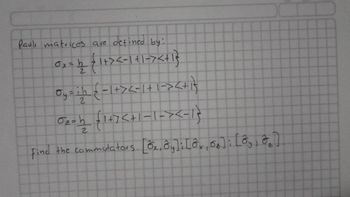 Pauli matrices are defined by:
σx = ħ/2 {|+><-|+|-><+|}
σy = iħ/2 {-|+><-|+|-><+|}
σz = ħ/2 {|+><+|-|-><-|}
Find the commutators. [σ̂x, σ̂y]; [σ̂x, σ̂z]; [σ̂y, σ̂z]